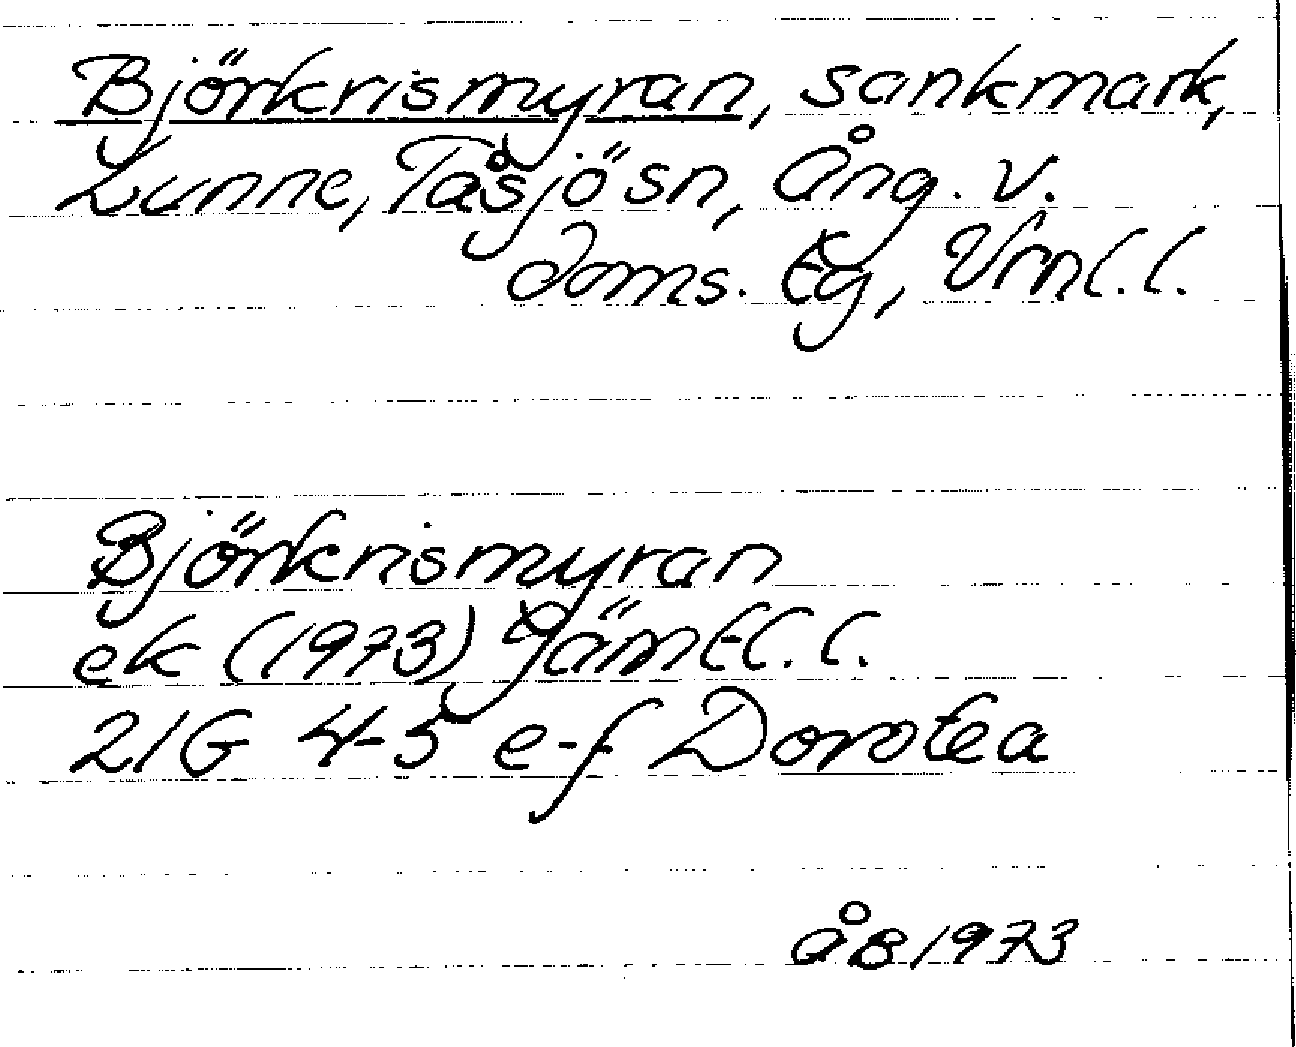 Björkrismyran, sankmark,
Lunne, Tåsjö sn, Ång. v.
doms. lg, Vrnl. l.
Björkrismyran
ek (1973) Jämtl. l.
21G 4-5 e-f Dorotea
ÅB 1973